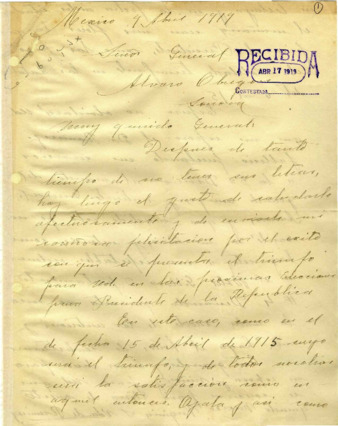 ①
Mexico 9 Abril 1919
Señor General
RECIBIDA
ABR 17 1919
CONTESTADA
Alvaro Obregón
Sonora
Muy querido General:
Después de tanto
tiempo de no tener sus letras,
hoy tengo el gusto de saludarlo
afectuosamente y de enviarle mi
felicitacion por el exito
con que se presenta el triunfo
para Ud en las proximas elecciones
para Presidente de la Republica
En este caso, como en el
de fecha 15 de Abril de 1915 suyo
será el triunfo, y de todos nosotros
será la satisfaccion como en
aquel entonces Ojala y asi como